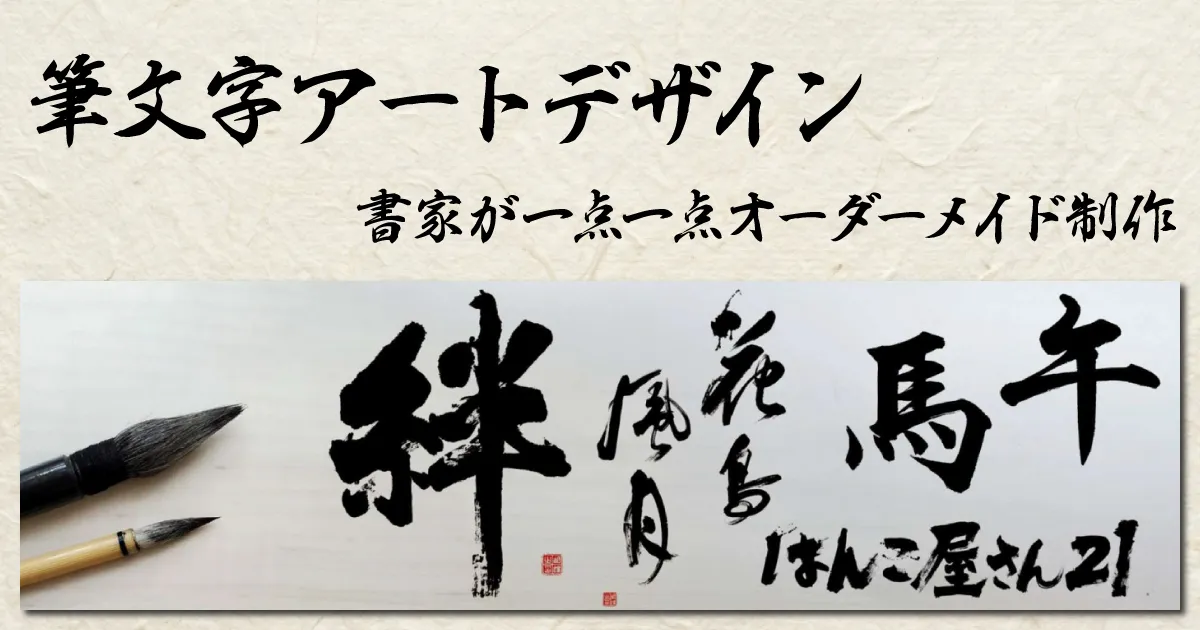 筆文字アートデザイン
書家が一点一点オーダーメイド制作
絆
花鳥
風月
午
馬
はんこ屋さん21